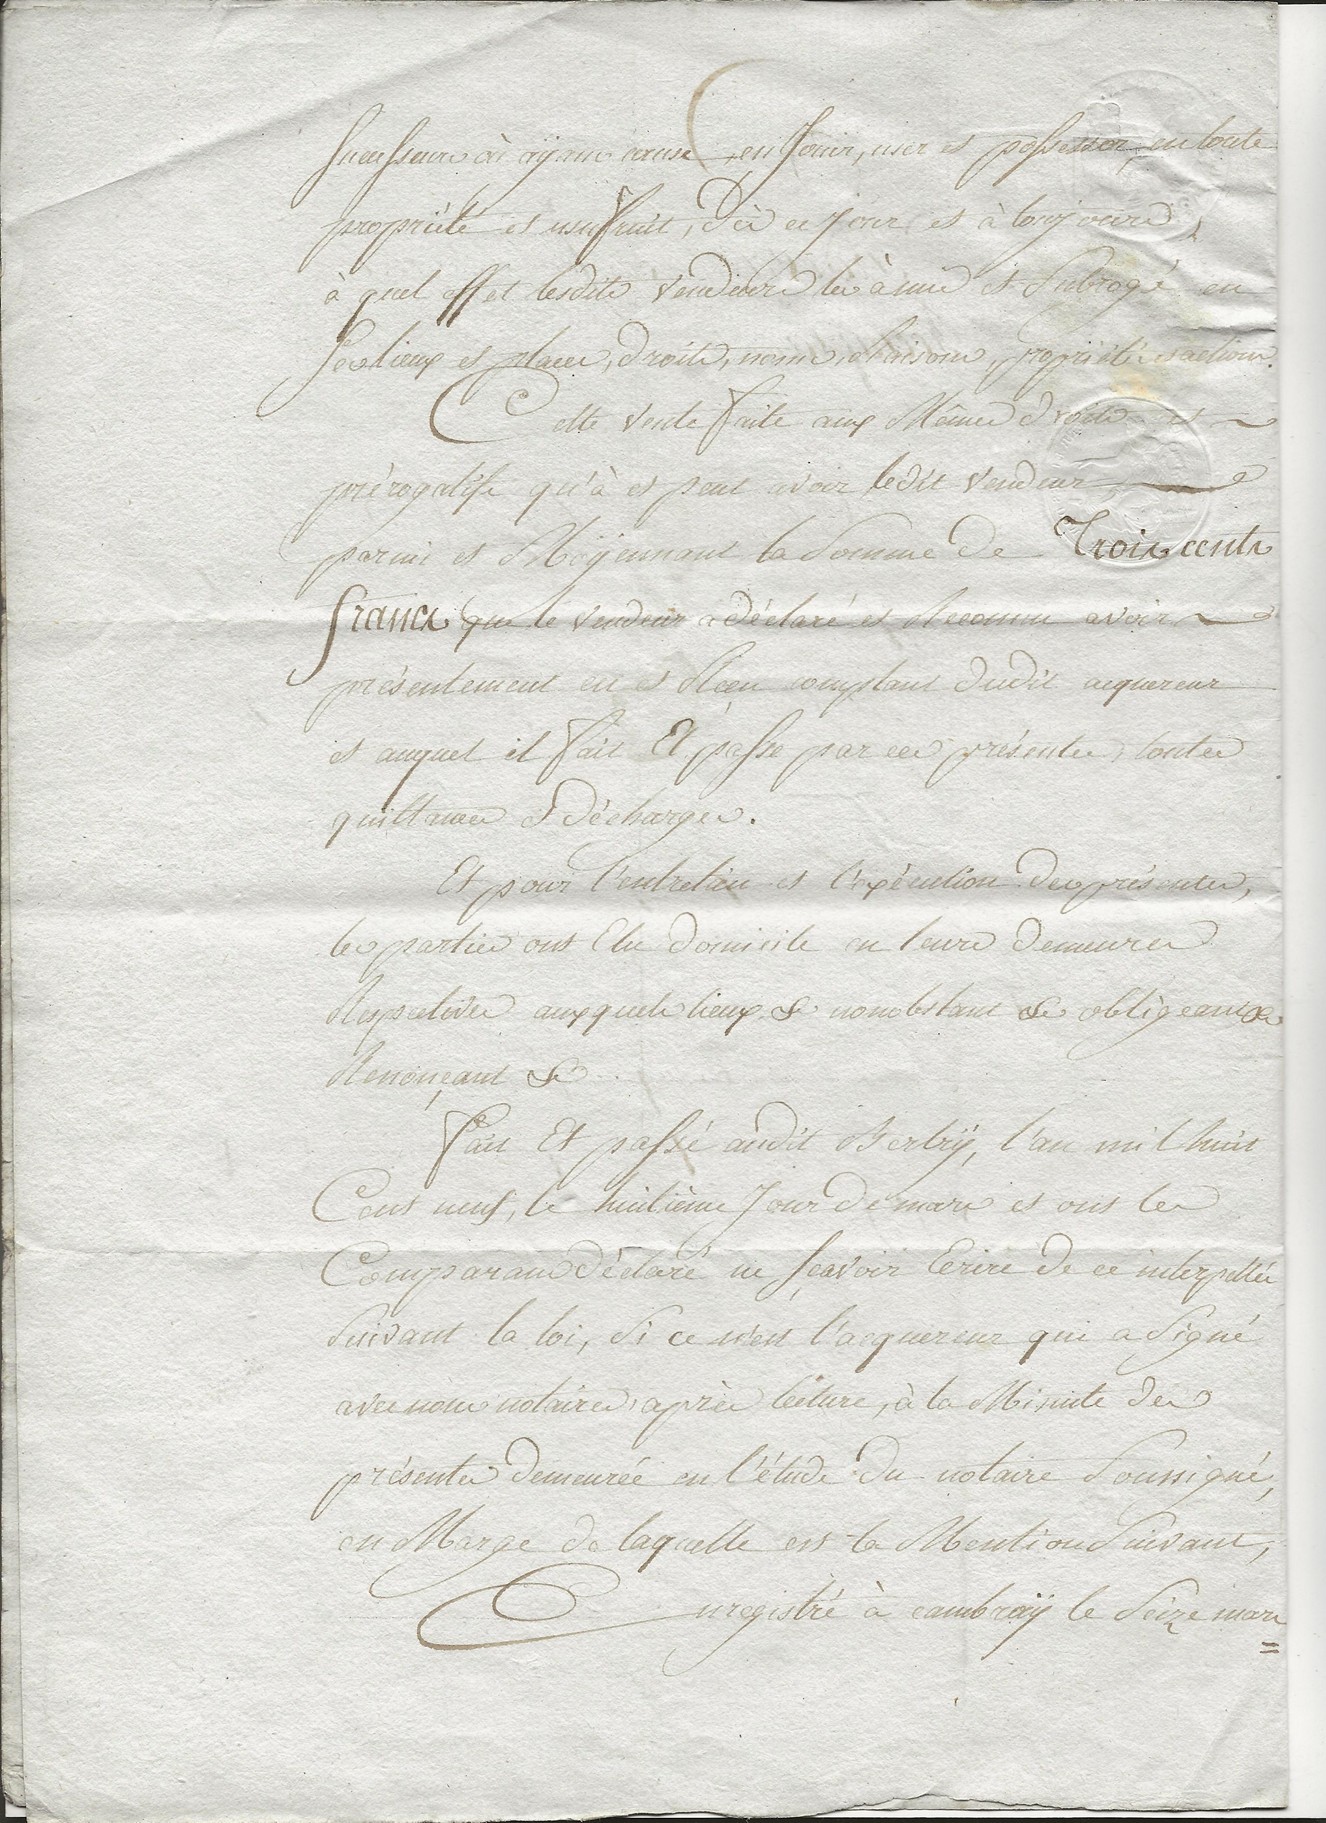 successeurs où aÿans cause, en Jouir, user et possesser, en toute
propriété et usufruit, dès ce Jour et à toujours,
à quel effet lesdits vendeurs les à mis et Subrogé en
Ses lieux et places, droits, noms, Raisons, propriétés et actions.
Cette vente faite aux Mêmes droits et
prérogatifs qu'à et peut avoir ledit vendeur
parmi et Moÿennant la Somme de Trois cents
francs que le vendeur a déclaré et Reconnu avoir
présentement eu et Reçu comptant dudit acquereur
et auquel il fait Et passe par ces présentes, toutes
quittances et décharges.
Et pour l'entretien et l'exécution des présentes,
les parties ont Elu domicile en leurs demeures
Respectives auxquels lieux &c nonobstant &c obligeant &c
Renonçant &c
Fait Et passé audit Bertrÿ, l'an mil huit
Cent neuf, le huitième Jour de mars et ont les
Comparans déclaré ne sçavoir Ecrire de ce interpellés
Suivant la loi, Si ce n'est l'acquereur qui a Signé
avec nous notaires, après lecture, à la Minute des
présentes demeurée en l'étude du notaire Soussigné,
en Marge de laquelle est la Mention Suivant,
Enregistré à cambraÿ le Seize mars